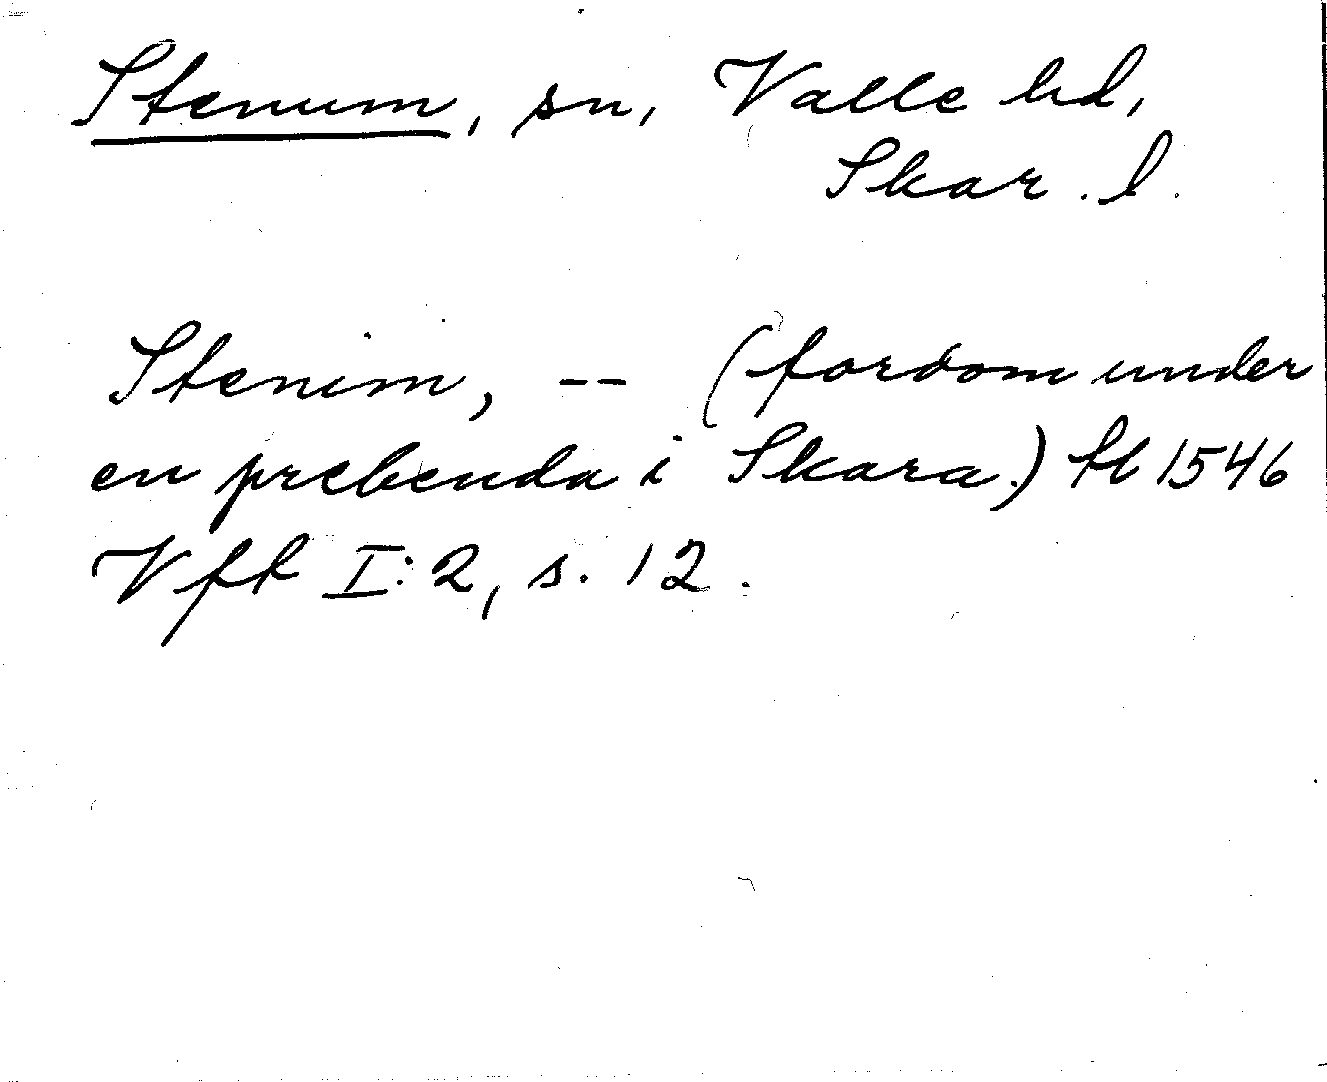 Stenum, sn, Valle hd,
Skar. l.
Stenim, -- (fordom under
en prebenda i Skara.) tl 1546
Vft I:2, s. 12.